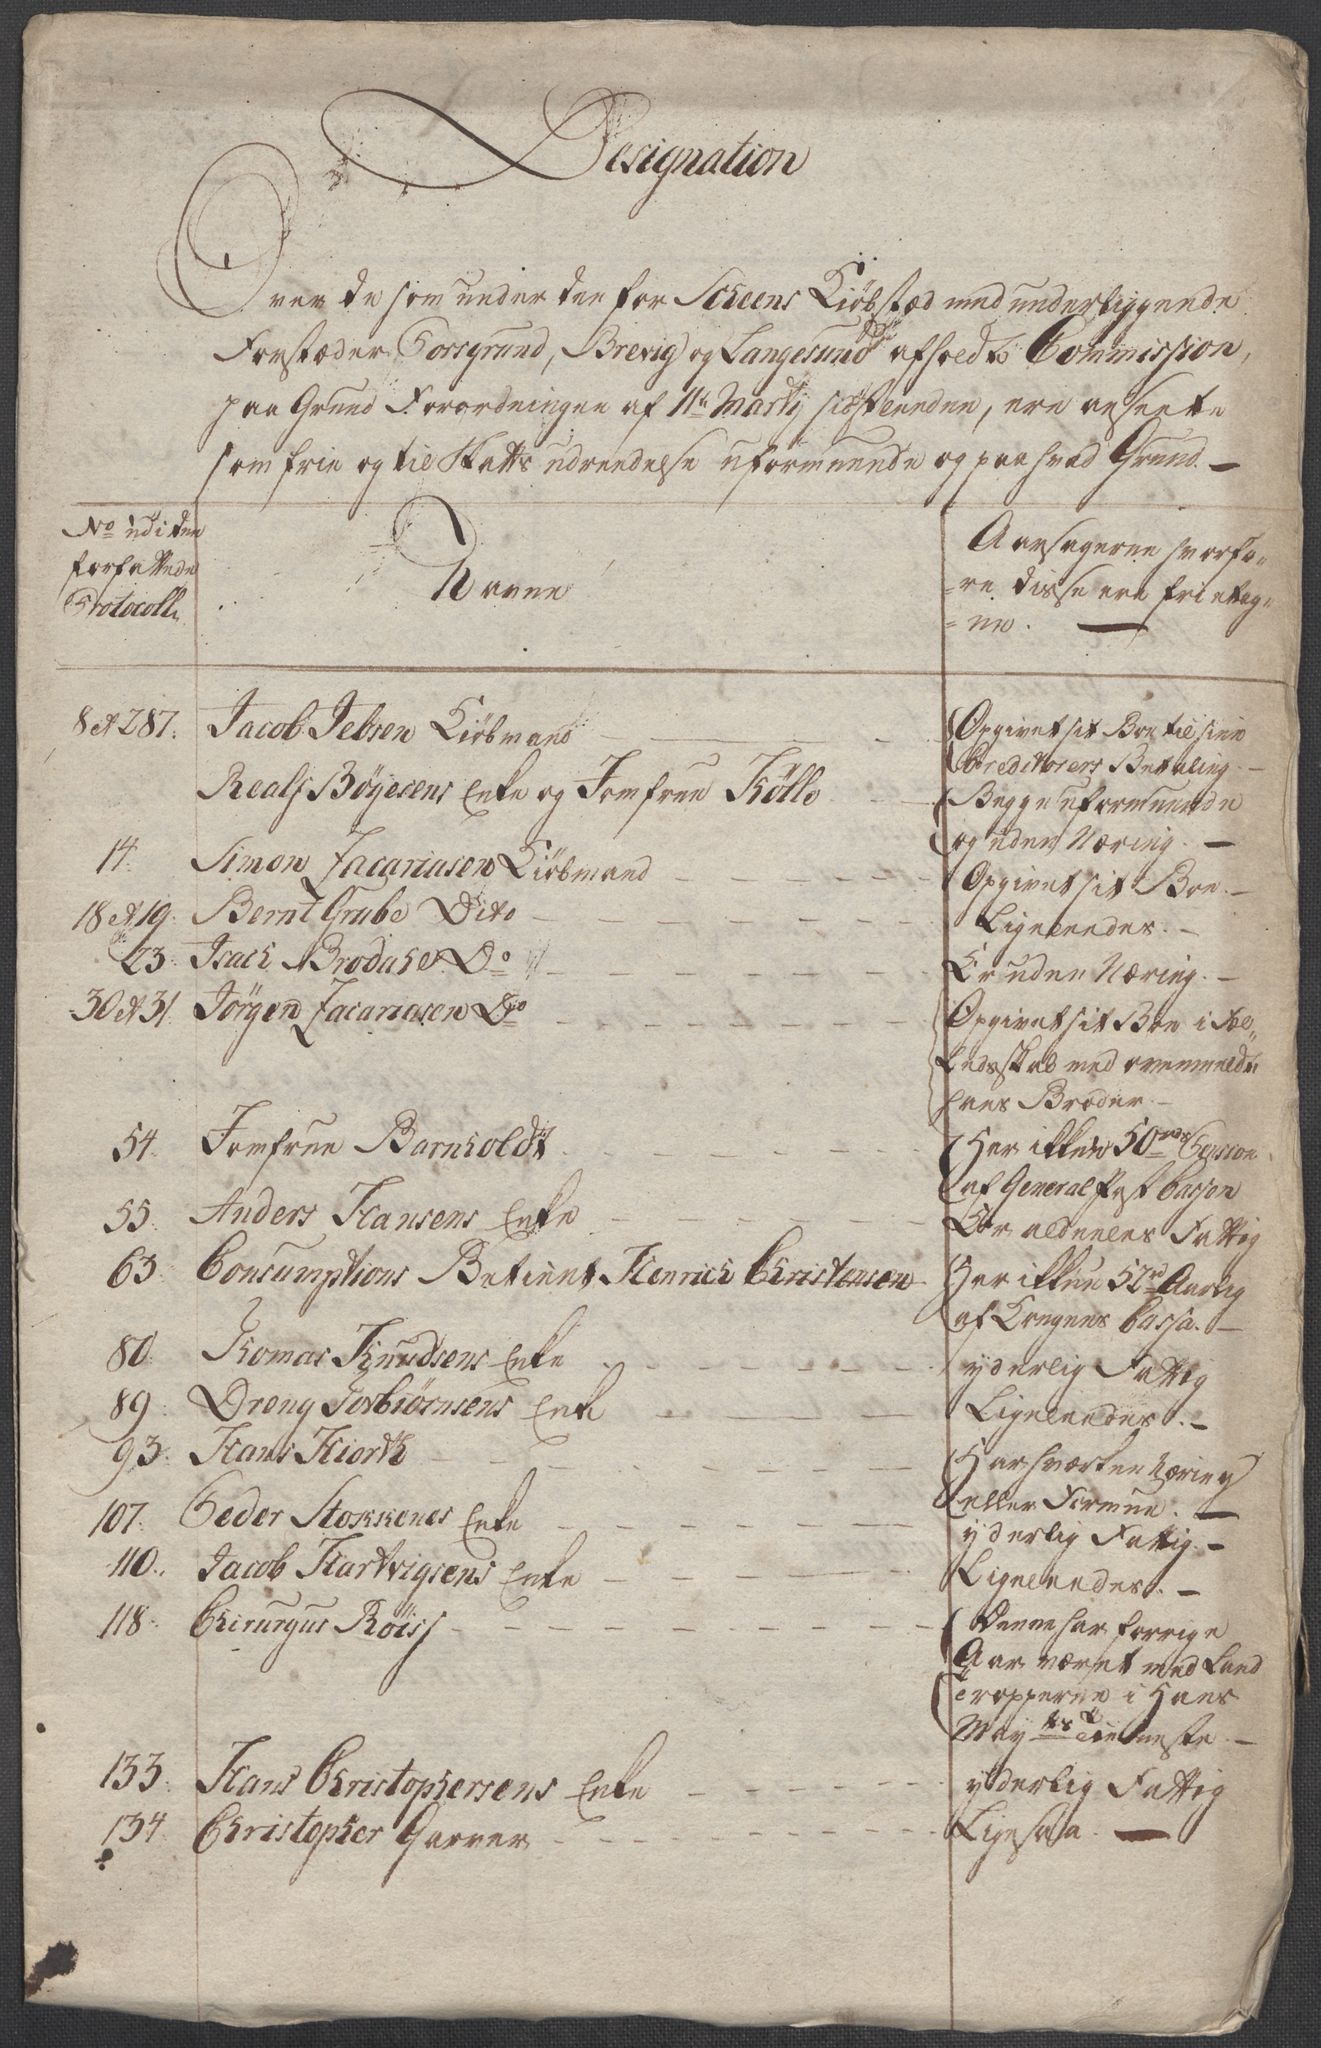 Designation
Over de som under den for Scheens Kiöbstæd med underliggende
Forstæder Porsgrund, Brevig og Langesund afholdte Commission,
paa Grund Forordningen af 11te Martij sidstleeden, ere anseete
som frie og til Skatts udredelse uformuende og paa hvad Grund. —
No udi den
forfattede
Protocoll
Navne
Aarsagerne hvorfo-
-re disse ere fritag-
-ne. —
8 et 287. Jacob Jebsen Kiöbmand — Opgivet sit Boe til sine
Creditorers Betaling. —
Realf Böyesens Enke og Jomfrue Kölle — Begge uformuende
og uden Næring. —
14. Simon Zacariasen Kiöbmand — Opgivet sit Boe. —
18 et 19. Bernt Grube Dito — Ligeleedes. —
23. Isach Brodahl Do — Er uden Næring. —
30 et 31. Jörgen Zacariasen Do — Opgivet sit Boe i Sel-
ledsskab med ovenmeldte
hans Broder —
54. Jomfrue Barnholdt — Har ikkun 50 rd Pension
af General Post Cassen
55. Anders Hansens Enke — Er aldeeles Fattig
63. Consumptions Betient Henrich Christensen — Har ikkun 52 rd Aarlig
af Kongens Cassa. —
80. Thomas Knudsens Enke — yderlig Fattig
89. Dreng Torbiörnsens Enke — Ligeleedes. —
93. Hans Hiorth — Har hværken Næring
eller Formue. —
107. Peder Stokkenes Enke — yderlig Fattig. —
110. Jacob Hartvigsens Enke — Ligeleedes. —
118. Chirurgus Röiss — Denne har forrige
Aar været med Land
Tropperne i Hans
May ts Tieneste. —
133. Hans Christophersens Enke — yderlig Fattig
134. Christopher Garver — Ligesaa. —